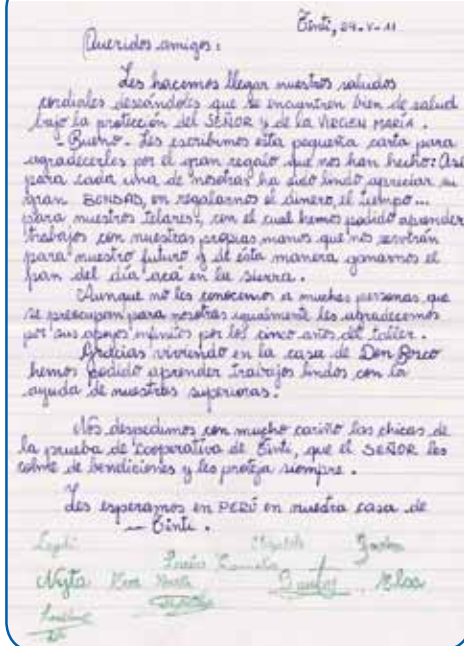 Tinti, 24-V-11
Queridos amigos:
Les hacemos llegar nuestros saludos
cordiales deseándoles que se encuentren bien de salud
bajo la protección del SEÑOR y de la VIRGEN MARÍA.
- Bueno - Les escribimos esta pequeña carta para
agradecerles por el gran regalo que nos han hecho: Así
para cada una de nosotras ha sido lindo apreciar su
gran BONDAD, en regalarnos el dinero, el tiempo...
para nuestros telares, con el cual hemos podido aprender
trabajos con nuestras propias manos que nos servirán
para nuestro futuro y de ésta manera ganarnos el
pan del día acá en la sierra.
Aunque no les conocemos a muchas personas que
se preocupan para nosotras igualmente les agradecemos
por sus apoyos infinitos por los cinco años del taller.
Gracias viviendo en la casa de Don Bosco
hemos podido aprender trabajos lindos con la
ayuda de nuestras superioras.
Nos despedimos con mucho cariño las chicas de
la prueba de cooperativa de Tinti, que el SEÑOR les
colme de bendiciones y les proteja siempre.
Les esperamos en PERÚ en nuestra casa de
- Tinti.
Elizabeth
Nyta Elsa